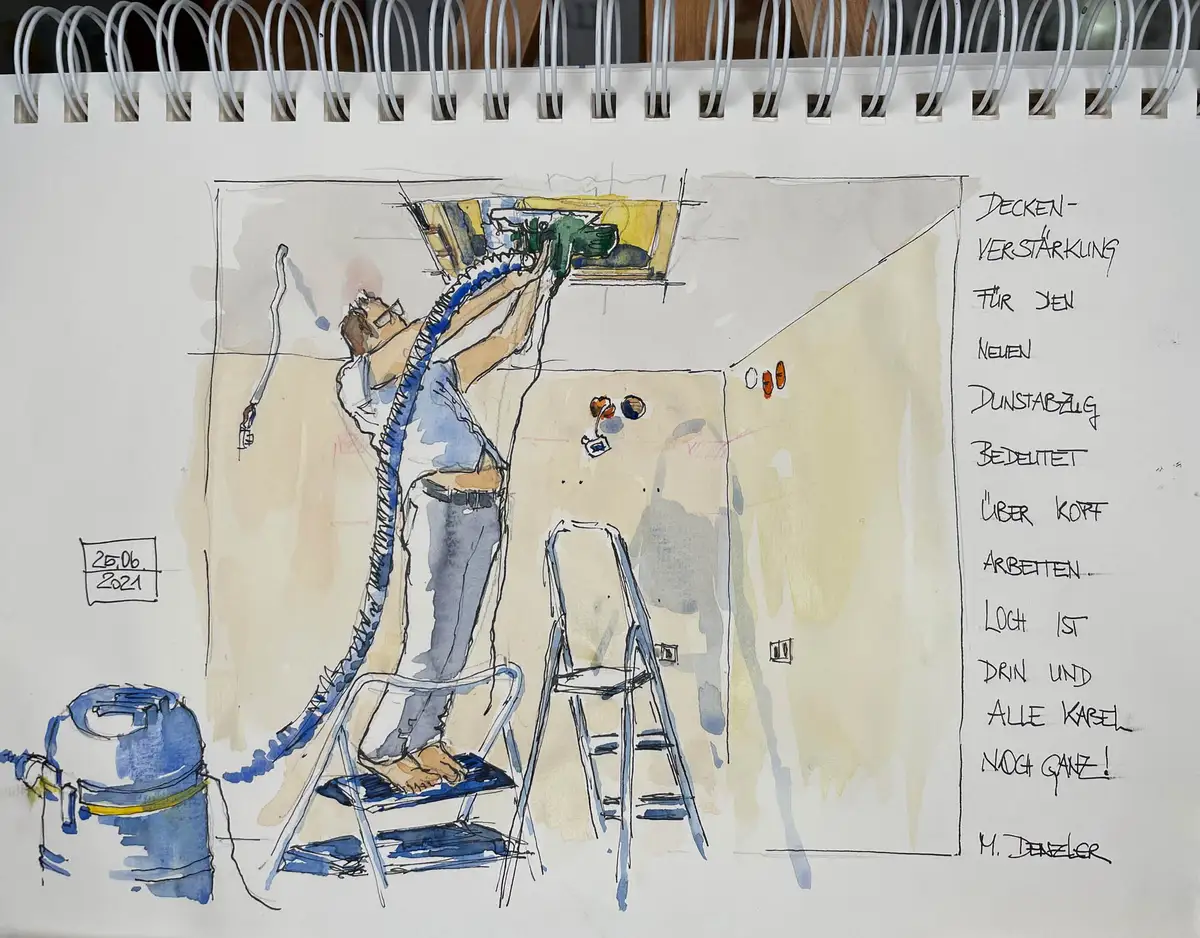 DECKEN-
VERSTÄRKUNG
FÜR DEN
NEUEN
DUNSTABZUG
BEDEUTET
ÜBER KOPF
ARBEITEN
LOCH IST
DRIN UND
ALLE KABEL
NOCH GANZ!
M. DENZLER
26.06.
2021